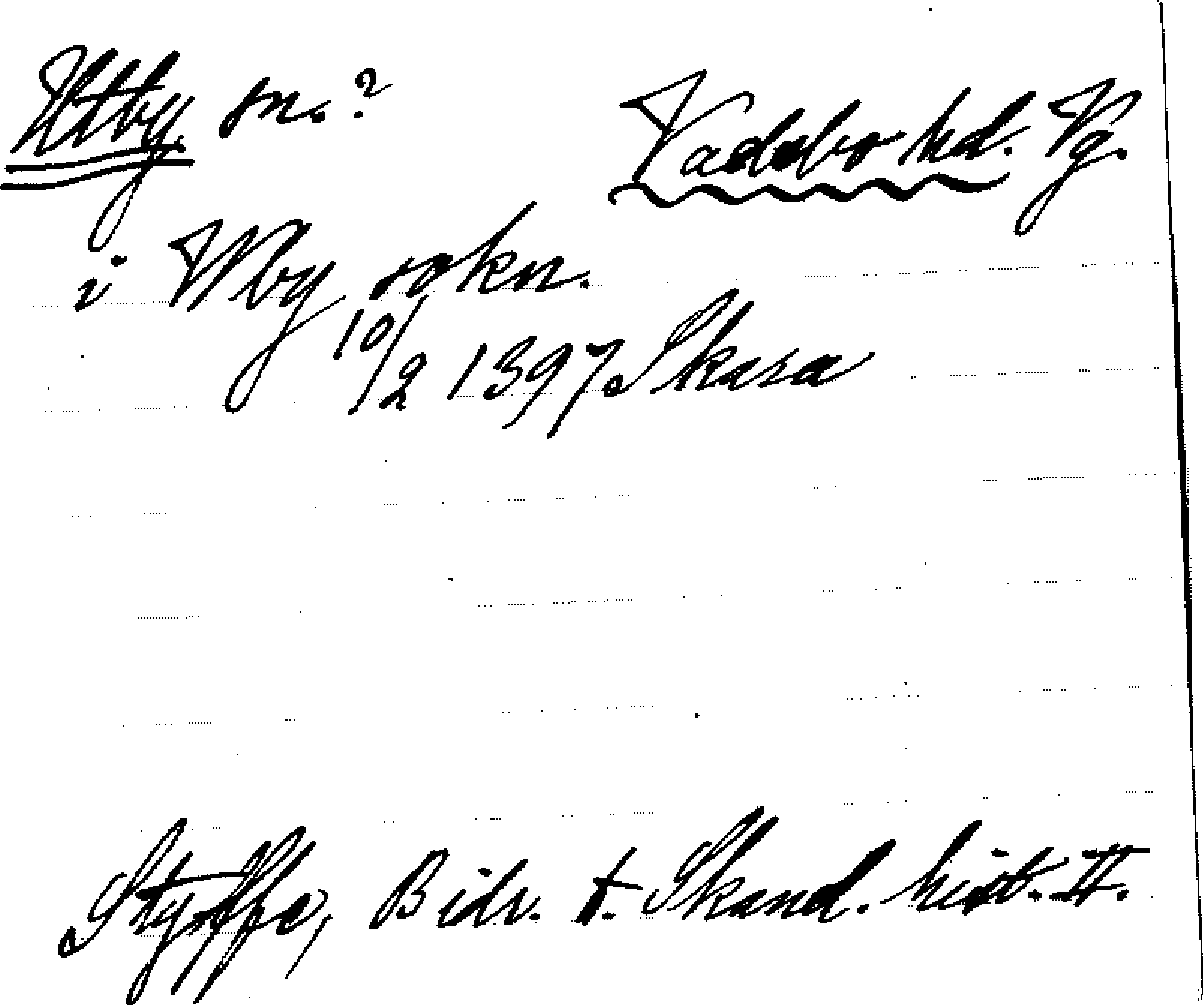 Utby sn.? Vadsbo hd. Vg.
i Wby sokn.
10/2 1397 Skara
Styffe, Bidr. t. Skand. hist. II.